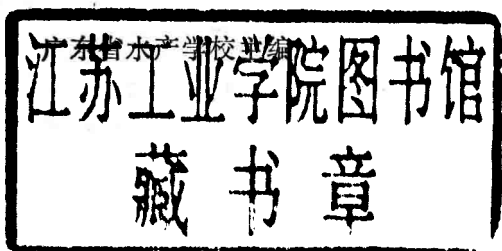 广东省水产学校主编
江苏工业学院图书馆
藏书章